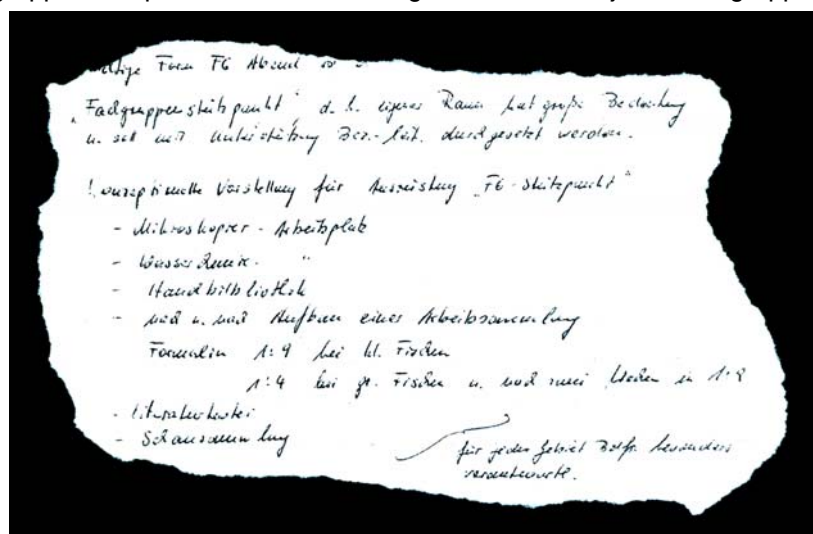 Form FG Abend
„Fachgruppenstützpunkt" d. h. eigener Raum hat große Bedeutung
u. soll mit Unterstützung Bez.-leit. durchgesetzt werden.
! konzeptionelle Vorstellung für Ausrüstung „FG-Stützpunkt"
- Mikroskopier-Arbeitsplatz
- Wasserchemie- "
- Handbibliothek
- nach u. nach Aufbau einer Arbeitssammlung
Formalin 1:9 bei kl. Fischen
1:4 bei gr. Fischen u. nach zwei Wochen in 1:9
- Literaturkartei
- Schausammlung
für jedes Gebiet besonders
verantwortl.